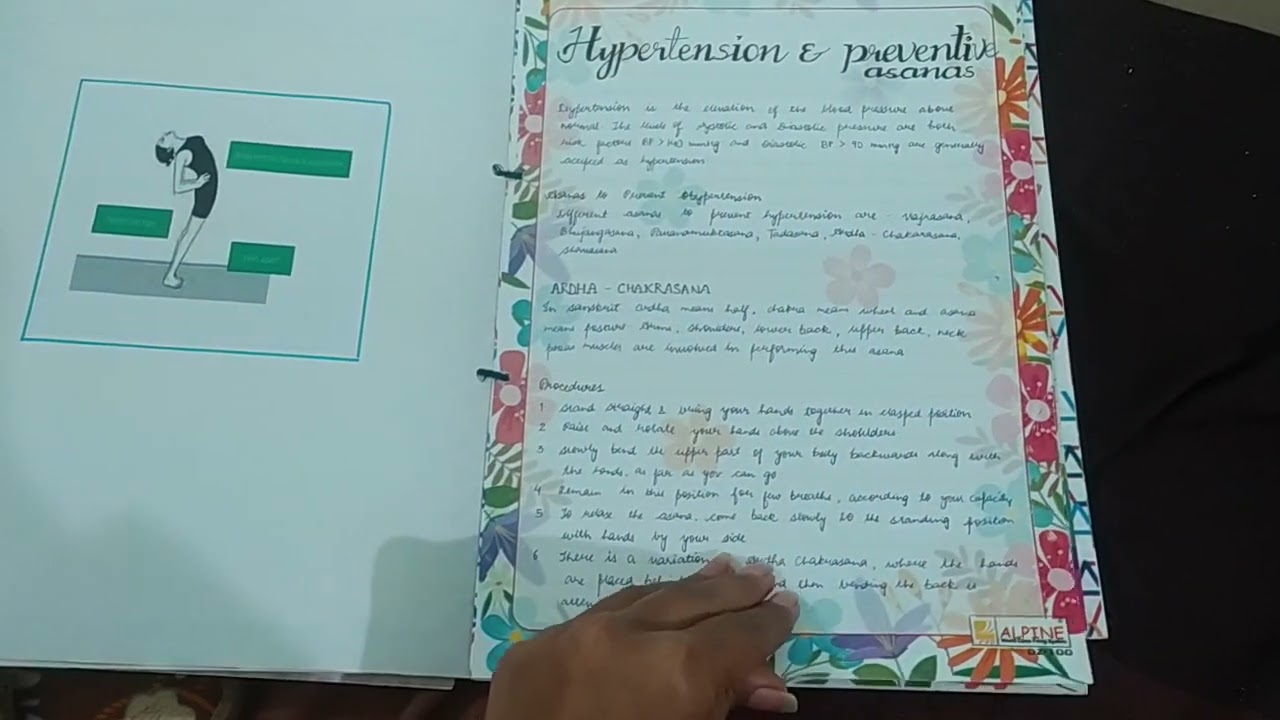 Hypertension & preventive
asanas
Hypertension is the elevation of the blood pressure above
normal. The levels of systolic and diastolic pressure are both
risk factors BP > 140 mmHg and diastolic BP > 90 mmHg are generally
accepted as hypertension
Asanas to Prevent Hypertension
Different asanas to prevent hypertension are - Vajrasana,
Bhujangasana, Pavanamuktasana, Tadasana, Ardha - Chakarasana,
ARDHA - CHAKRASANA
In sanskrit ardha means half, chakra means wheel and asana
means posture. Arms, shoulders, lower back, upper back, neck
muscles are involved in performing this asana
Procedures
1 Stand straight & bring your hands together in clasped position
2 Raise and rotate your hands above the shoulders
3 slowly bend the upper part of your body backwards along with
the hands, as far as you can go
4 Remain in this position for few breaths, according to your capacity
5 To relax the asana, come back slowly to the standing position
with hands by your side
6 There is a variation Ardha Chakrasana, where the hands
are placed then bending the back is
ALPINE
DZ-100